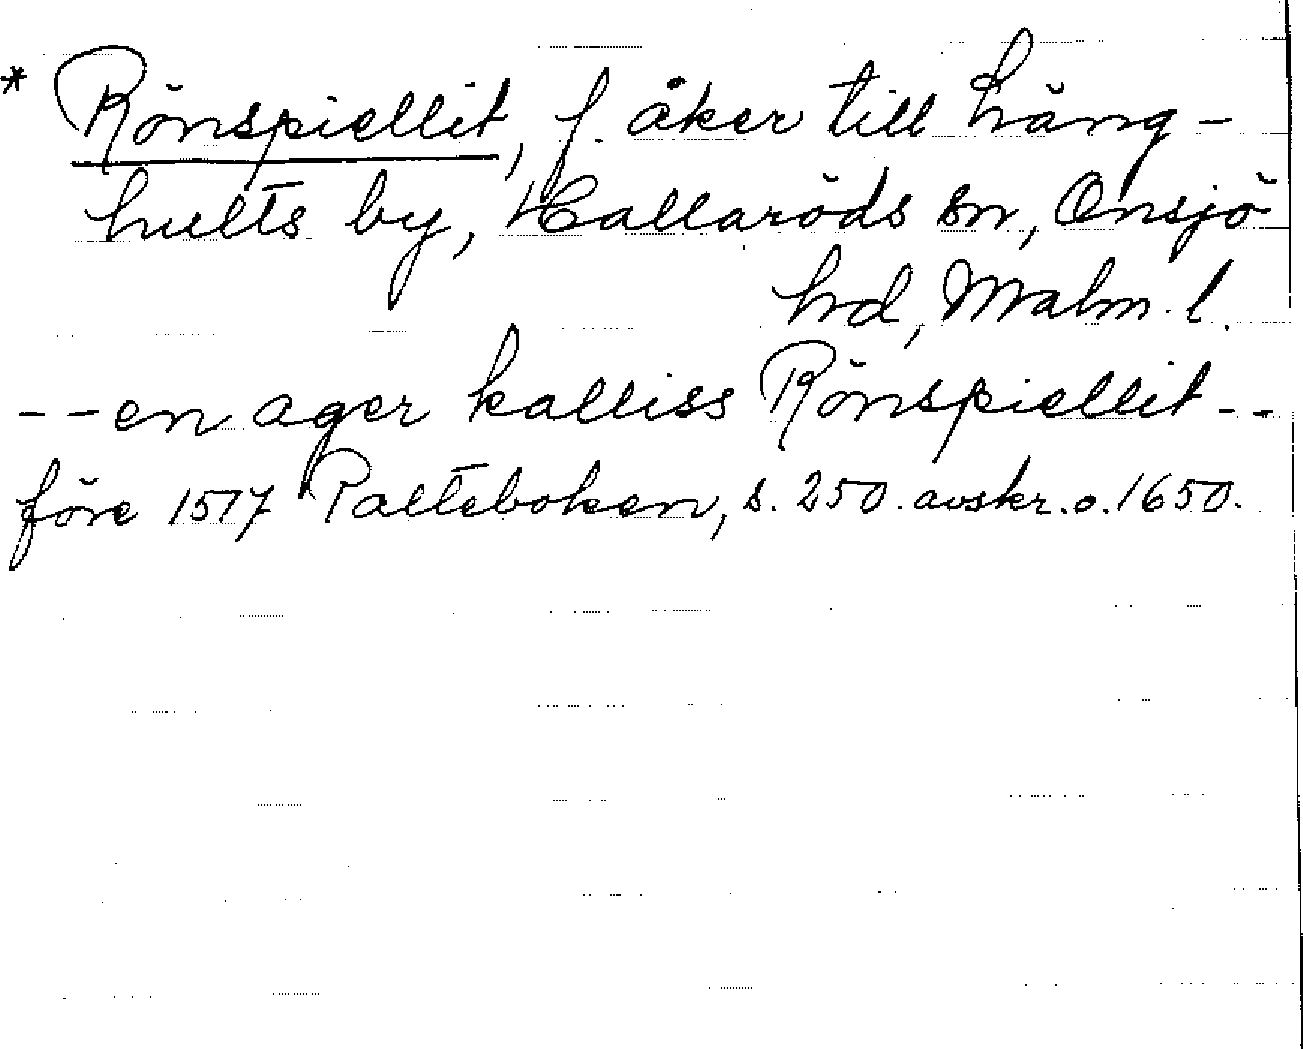 * Rönspiellit, f. åker till Lång-
hults by, Hallaröds sn, Onsjö
hd, Malm. l.
-- en ager kalliss Rönspiellit --
före 1517 Palteboken, s. 250. avskr. o. 1650.